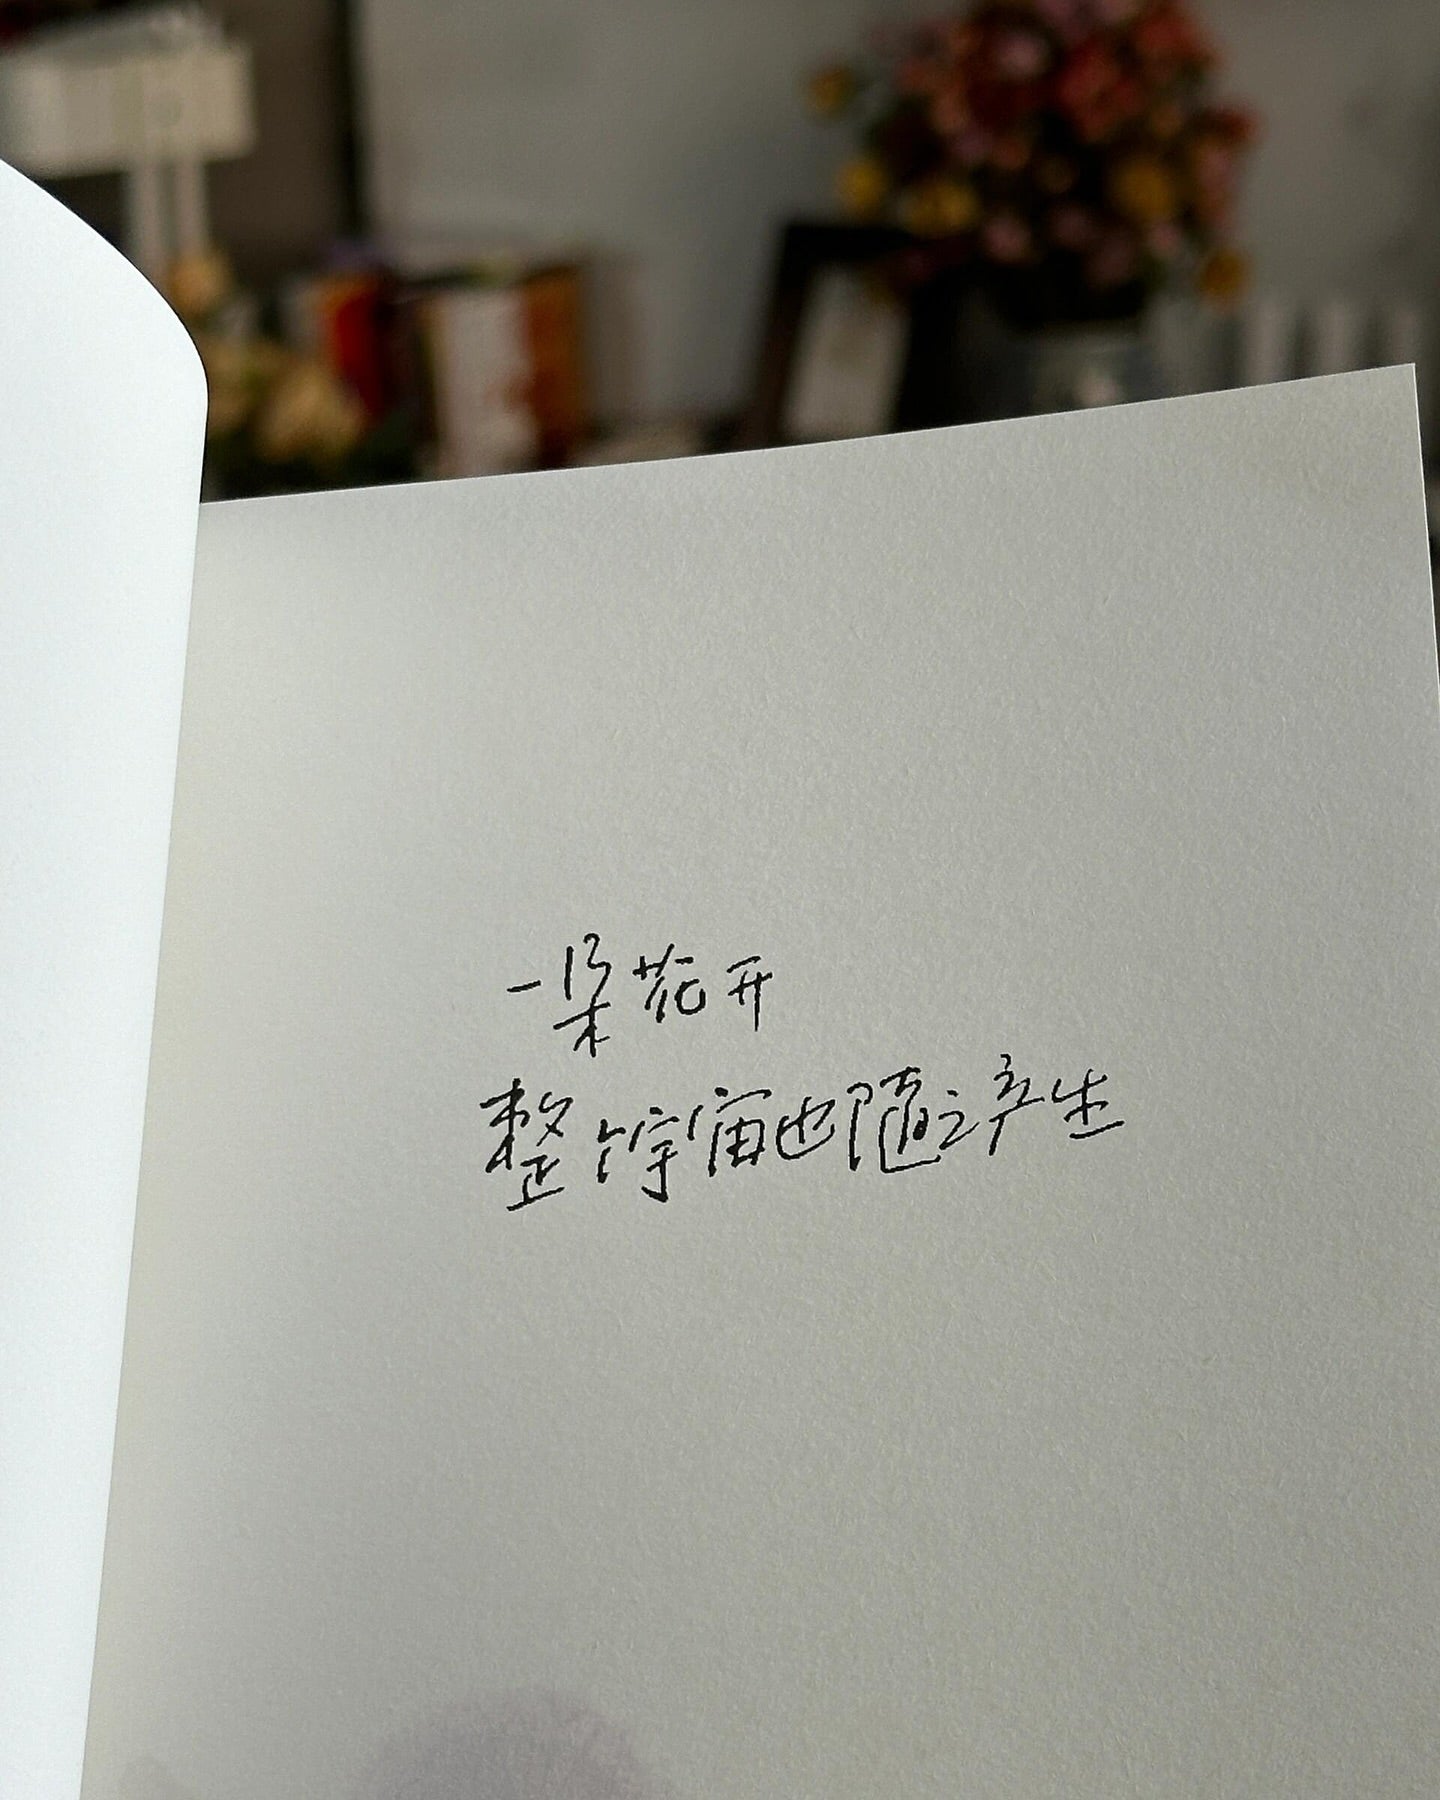 一朵花开
整个宇宙也随之产生